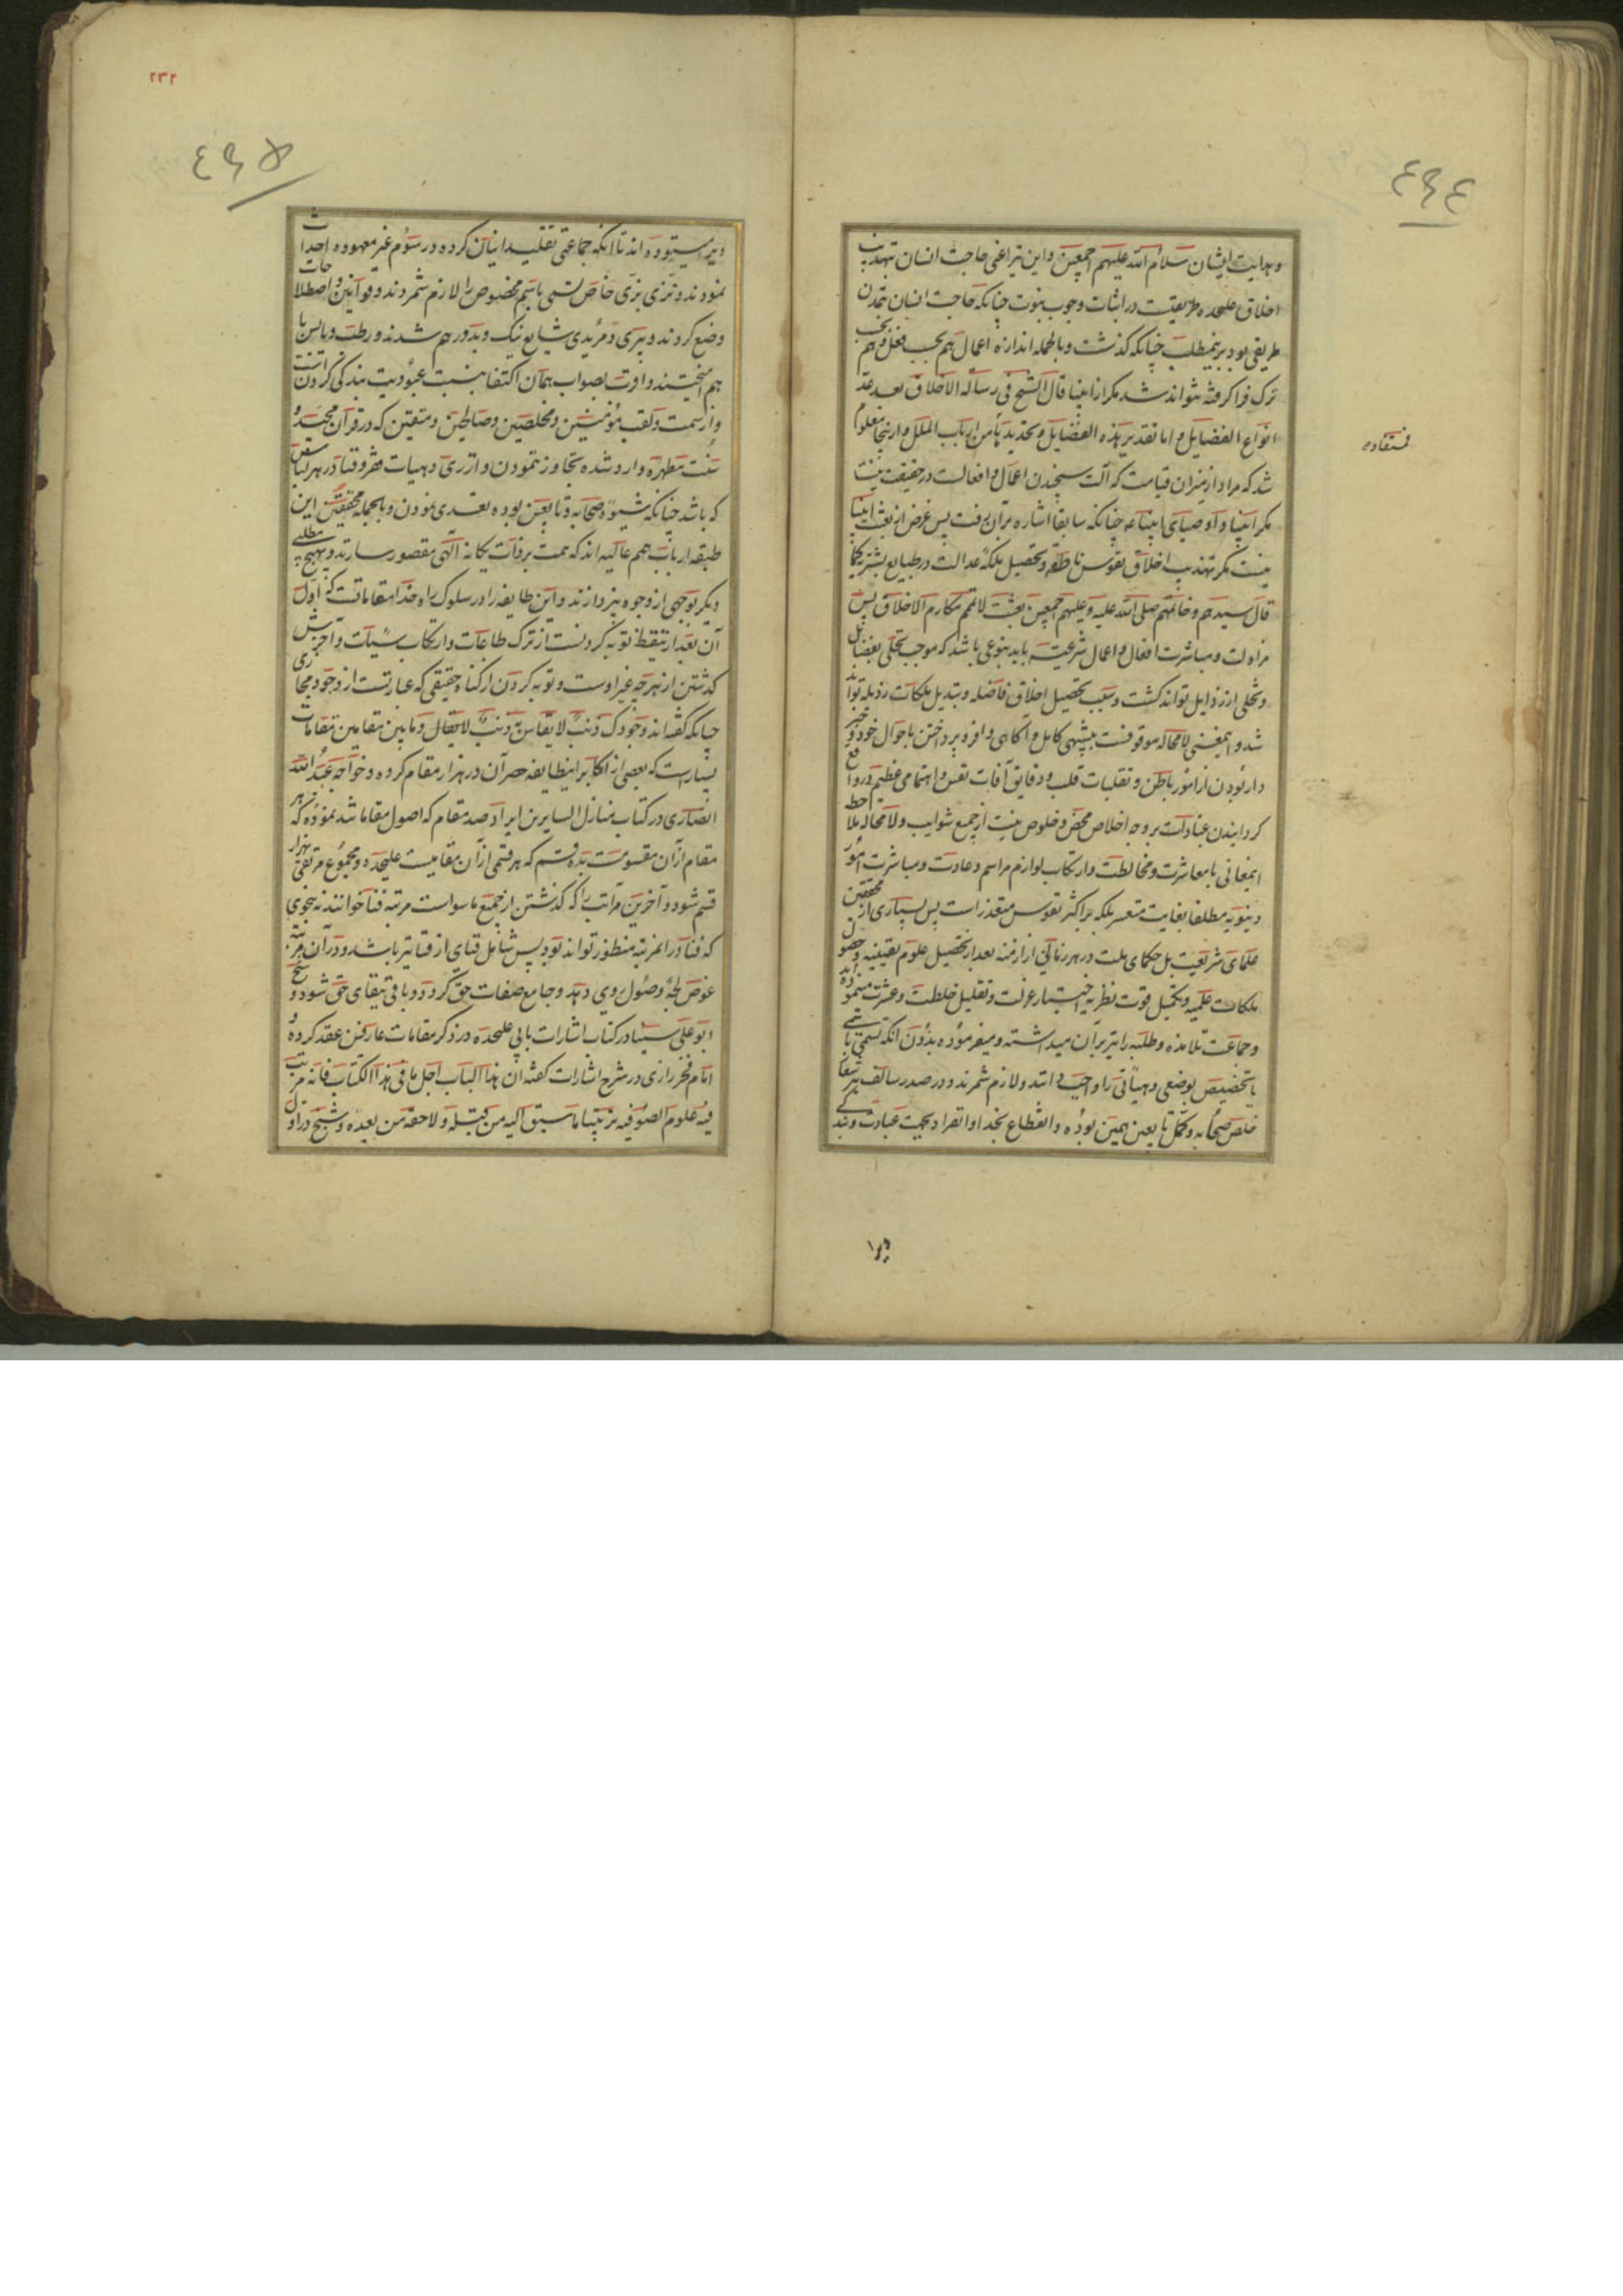 ٤٩٤
وهدایت ایشان سلام الله علیهم اجمعین واین نیز اعنی حاجت انسان بتهذیب
اخلاق علیحده طریقیست در اثبات وجوب نبوت چنانکه حاجت انسان بتمدن
طریقی بود برینمطلب چنانکه گذشت وبالجمله اندازه اعمال هم بحسب فعل وهم بحسب
ترک فرا گرفته نتواند شد مگر از انبیا قال الشیخ فی رسالة الاخلاق بعد عد
انواع الفضایل واما تقدیر هذه الفضایل وتحدیدها من ارباب الملل وازینجا معلوم
مستفاده
شد که مراد از میزان قیامت که آلت سنجیدن اعمال وافعالست در حقیقت نیست
مگر انبیا واوصیای انبیاء چنانکه سابقا اشاره بران رفت پس غرض از بعثت انبیا
نیست مگر تهذیب اخلاق نفوس ناطقه وتحصیل ملکه عدالت در طبایع بشریه کما
قال سیدهم وخاتمهم صلی الله علیه وعلیهم اجمعین بعثت لاتمم مکارم الاخلاق پس
مزاولت ومباشرت افعال واعمال شرعیه باید بنوعی باشد که موجب تحلی بفضایل
وتخلی از رذایل تواند گشت وسبب تحصیل اخلاق فاضله وتبدیل ملکات رذیله تواند
شد واینمعنی لامحاله موقوفست بتنبهی کامل وآگاهی وافر وپرداختن باحوال خود وخبر
دار بودن از امور باطن وتقلبات قلب ودقایق آفات نفس واهتمامی عظیم در واقع
گردانیدن عبادات بر وجه اخلاص محض وخلوص نیت از جمیع شوایب ولامحاله ملاحظه
اینمعانی با معاشرت ومخالطت وارتکاب لوازم مراسم وعادت ومباشرت امور
دنیویه مطلقا بغایت متعسر بلکه بر اکثر نفوس متعذر است پس بسیاری از محققین
علمای شریعت بل حکمای ملت در هر زمانی از ازمنه بعد از تحصیل علوم یقینیه وحصول
ملکات علمیه وتکمیل قوت نظریه اختیار عزلت وتقلیل خلطت وعشرت مینموده اند
وجماعت تلامذه وطلبه را نیز بران میداشته ومیفرموده بدون آنکه تسمی باسمی
یا تخصیص بوضعی وهیأتی را واجب دانند ولازم شمرند ودر صدر سالف نیز شعار
خلص صحابه وکمل تابعین همین بوده وانقطاع بخدا وانفراد بجهت عبادت وبندگی
ویرا
٢٣٢
٤٩٥
ویرا میستوده اند تا آنکه جماعتی تقلید اینان کرده در رسوم غیر معهوده احداث
نمودند وتزیی بزی خاص وتسمی باسم مخصوص را لازم شمردند وقوانین واصطلاحات
وضع کردند وپیری ومریدی شایع نیک وبد در هم شدند ورطب ویابس با
هم آمیختند واوت بصواب همان اکتفا بنسبت عبودیت بندگی کردن است
واز سمت ولقب مؤمنین ومخلصین وصالحین ومتقین که در قرآن مجید و
سنت مطهره وارد شده تجاوز ننمودن واز زی وهیات فقر وفنا در هر لباس
که باشد چنانکه شیوه صحابه وتابعین بوده تعدی نمودن وبالجمله محققین این
طبقه ارباب همم عالیه اند که همت بر ذات یگانه آلهی مقصور سازند وبهیچ مطلبی
دیگر بوجهی از وجوه نپردازند واین طایفه را در سلوک راه خدا مقاماتست که اول
آن بعد از تیقظ توبه کردنست از ترک طاعات وارتکاب سیئات وآخرش
گذشتن از هر چه غیر اوست وتوبه کردن از گناه حقیقی که عبارتست از وجود مجازی
چنانکه گفته اند وجودک ذنب لا یقاس به ذنب وما بین مقامین مقامات
بسیار است که بعضی از اکابر اینطایفه حصر آن در هزار مقام کرده وخواجه عبدالله
انصاری در کتاب منازل السایرین ایراد صد مقام که اصول مقاما شد نموده که هر
مقام ازان مقسومست بده قسم که هر قسمی از آن مقامیست علیحده ومجموع مرتقی بهزار
قسم شود وآخرین مراتب را که گذشتن از جمیع ما سواست مرتبه فنا خوانند نه بنحوی
که فنا در آنمرتبه منظور تواند بود پس شامل فنای از فنا نیز باشد ودر آن مرتبه
غوص لجه وصول روی دهد وجامع صفات حق گردد وباقی ببقای حق شود وشیخ
ابو علی سینا در کتاب اشارات بابی علیحده در ذکر مقامات عارفین عقد کرده و
امام فخر رازی در شرح اشارات گفته ان هذا الباب اجل ما فی هذا الکتاب فانه رتب
فیه علوم الصوفیه ترتیبا ما سبق الیه من قبله ولا لحقه من بعده وشیخ در اول